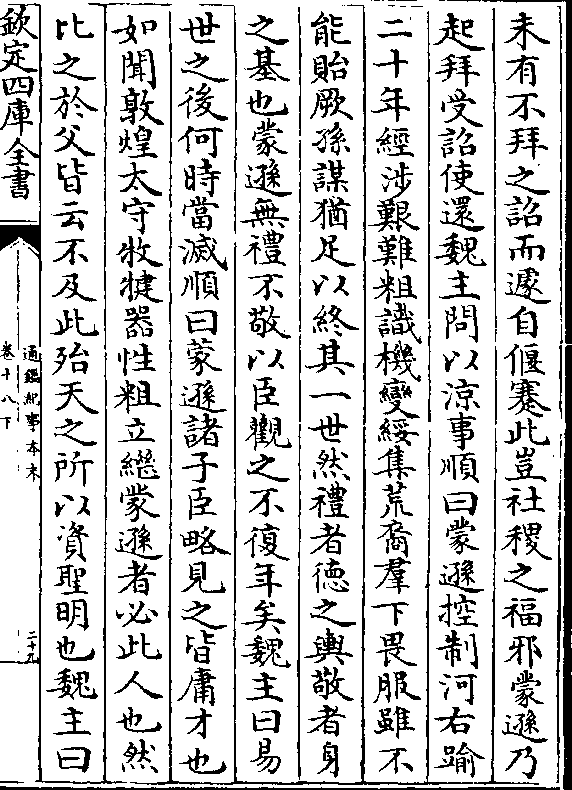 未有不拜之詔而遽自偃蹇此豈社稷之福邪蒙遜乃
起拜受詔使還魏主問以涼事順曰蒙遜控制河右踰
二十年經涉艱難粗識機變綏集荒裔羣下畏服雖不
能貽厥孫謀猶足以終其一世然禮者德之輿敬者身
之基也蒙遜無禮不敬以臣觀之不復年矣魏主曰易
世之後何時當滅順曰蒙遜諸子臣略見之皆庸才也
如聞敦煌太守牧犍器性粗立繼蒙遜者必此人也然
比之於父皆云不及此殆天之所以資聖明也魏主曰
欽定四庫全書
通鑑紀事本末
卷十八下
二十九